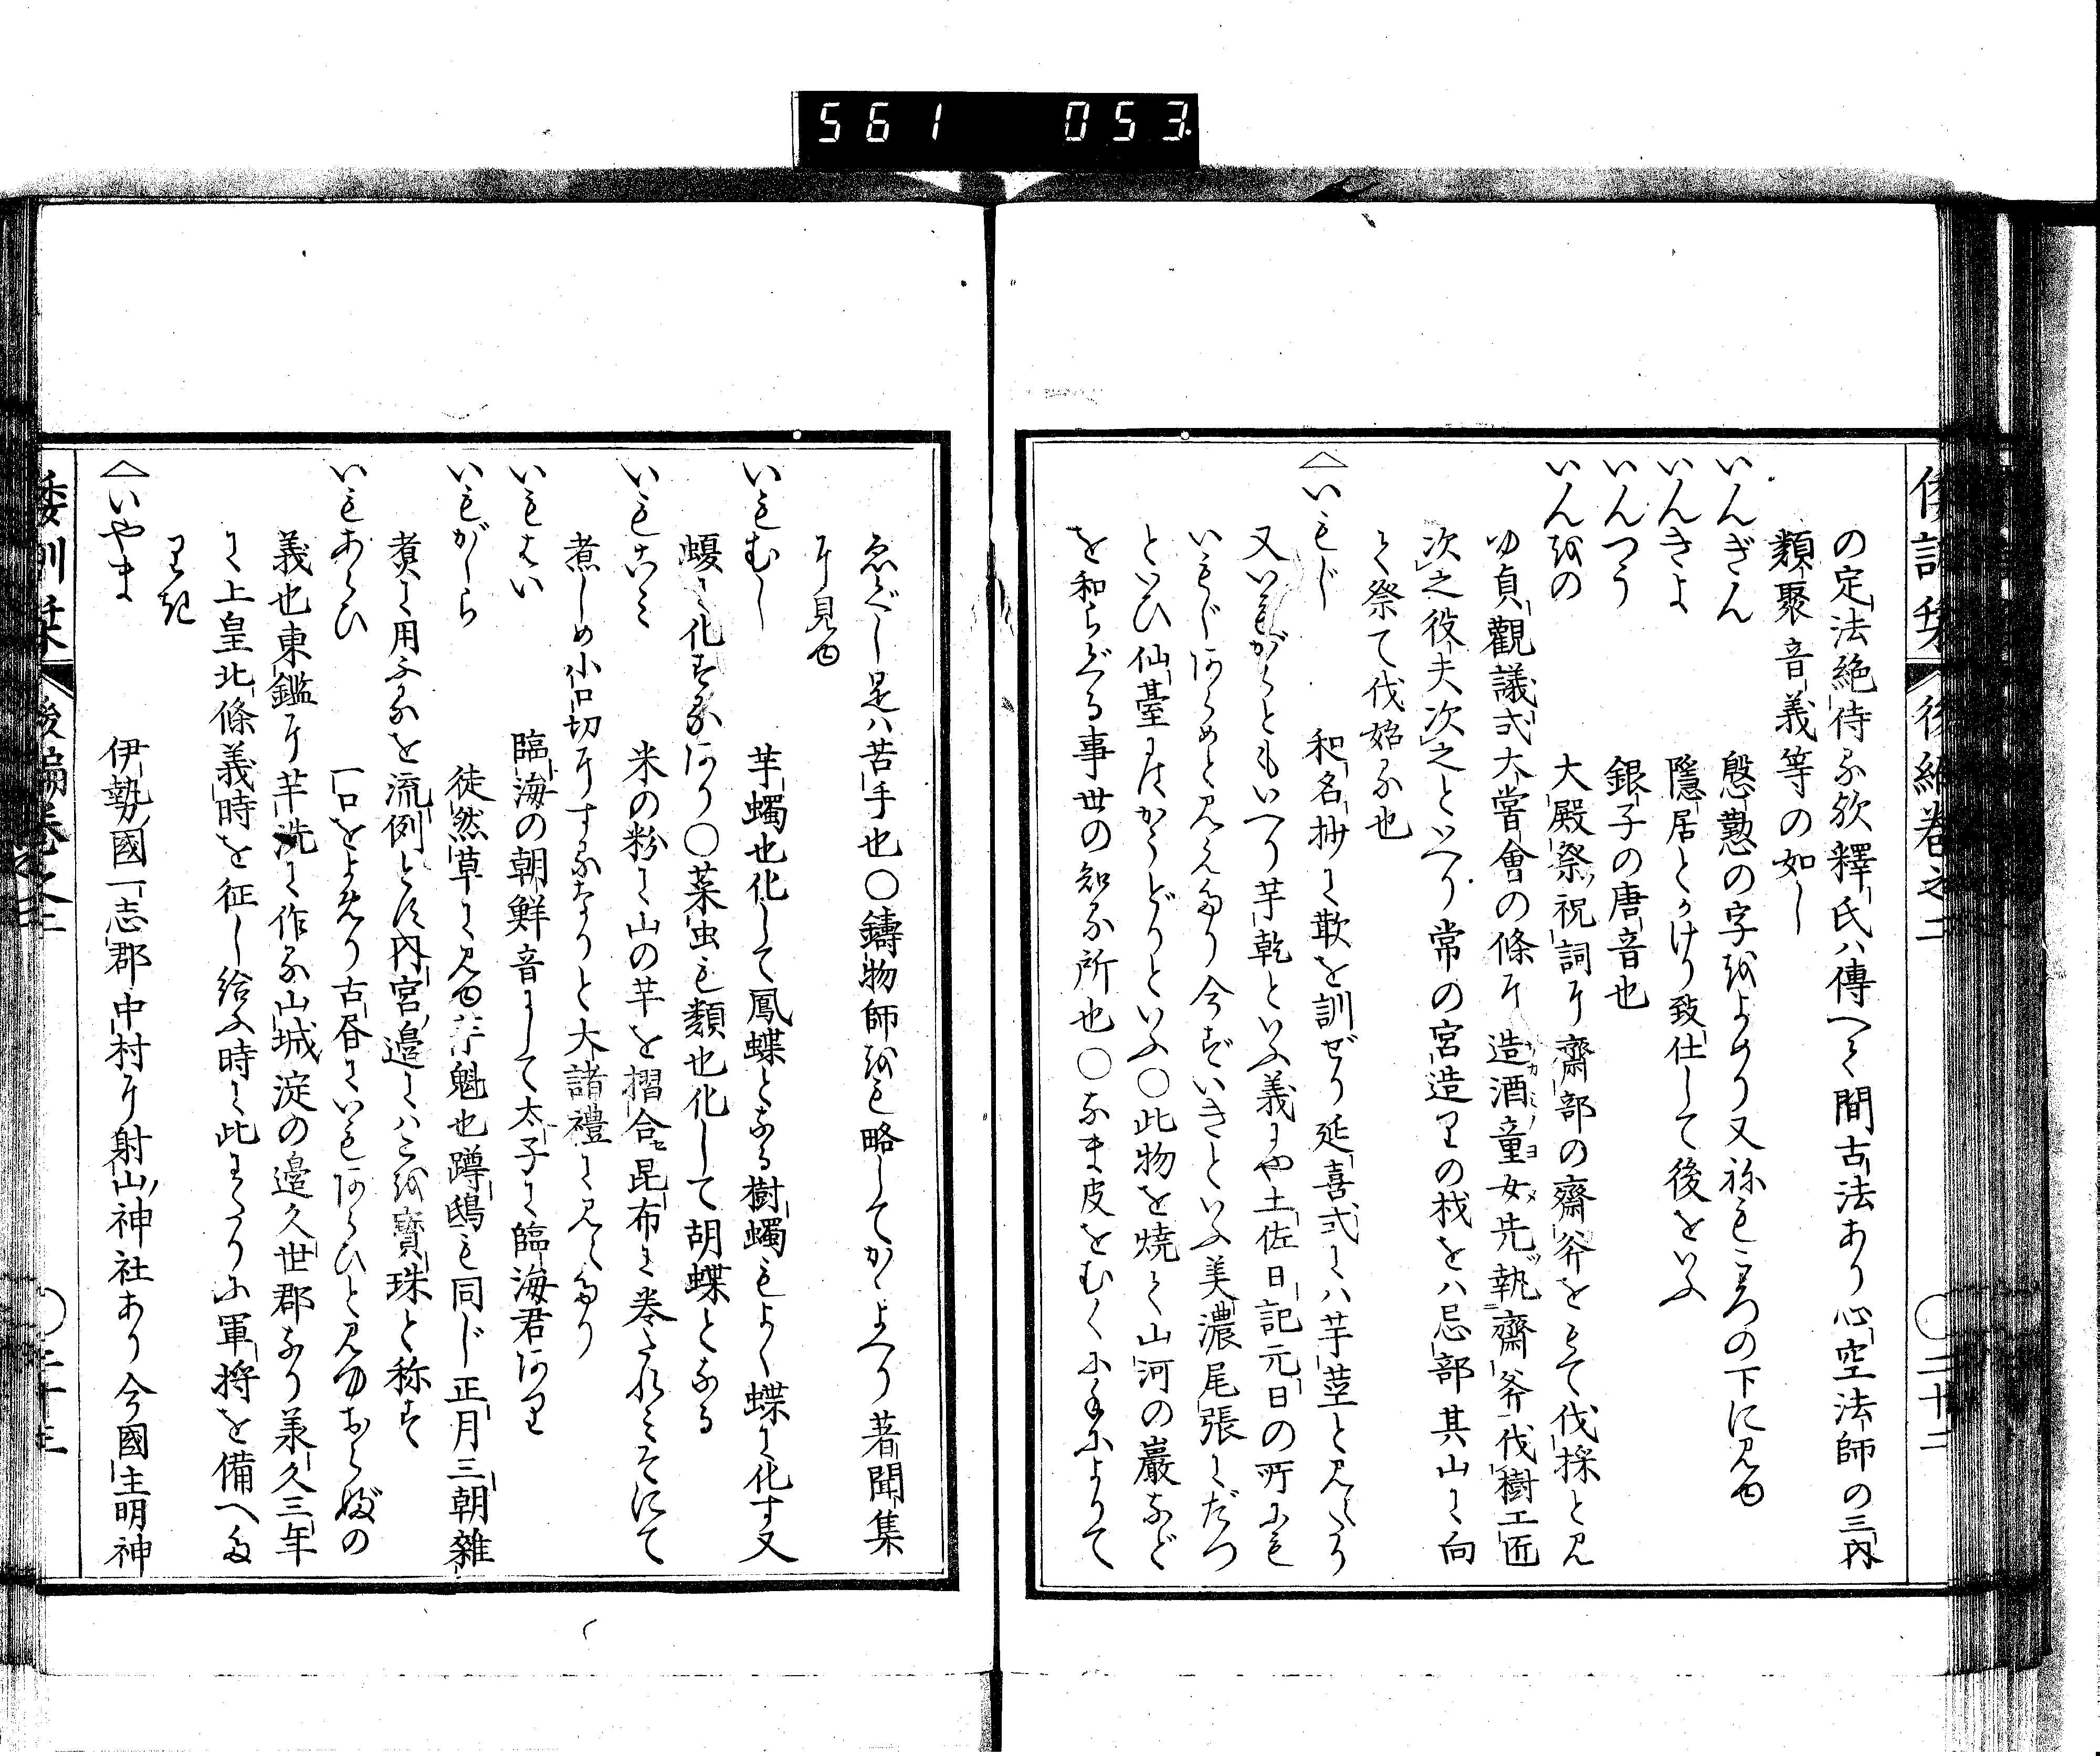 561 053
倭訓栞 後編巻之二 〇二十二
の定法絶待ふ欤釋氏ハ傳へて間古法あり心空法師の三内
類聚音義等の如し
いんぎん 慇懃の字をよめり又祢もころの下に見ゆ
いんきよ 隠居とかけり致仕して後をいふ
いんつう 銀子の唐音也
いんをの 大殿祭祝詞に齋部の齋斧をもて伐採と見
ゆ貞觀議式大嘗會の條に造酒童女先執齋斧伐樹工匠
次之役夫次之といへり常の宮造りの材をハ忌部其山に向
て祭て伐始る也
△いもじ 和名抄に䕅を訓ぜり延喜式にハ芋莖と見えたり
又いもがらともいへり芋乾といふ義にや土佐日記元日の所にも
いもじあらめと見えたり今ずいきといふ美濃尾張にだつ
といひ仙臺にはからどりといふ〇此物を焼て山河の巖など
を和らぐる事世の知る所也〇なま皮をむくに手によりて
ゑぐし是ハ苦手也〇鑄物師をも略してかくよべり著聞集
に見ゆ
いもむし 芋蠋也化して鳳蝶となる樹蠋もよく蝶に化す又
蝘に化するあり〇菜虫も類也化して胡蝶となる
いもこみ 米の粉に山の芋を摺合セ昆布に巻たれみそにて
煮しめ小口切にするなりと大諸禮に見えたり
いもはい 臨海の朝鮮音にして太子に臨海君あり
いもがしら 徒然草に見ゆ芋魁也蹲鴟も同じ正月三朝雑
煮に用ふるを流例とす内宮邉にハこを寶珠と称す
いもあらひ 一口をよめり古昏にいもあらひと見ゆおらばの
義也東鑑に芋洗に作る山城淀の邉久世郡なり承久三年
に上皇北條義時を征し給ふ時に此わたりに軍将を備へた
りき
△いやま 伊勢國一志郡中村に射山神社あり今國主明神
倭訓栞 後編巻之二 〇二十三